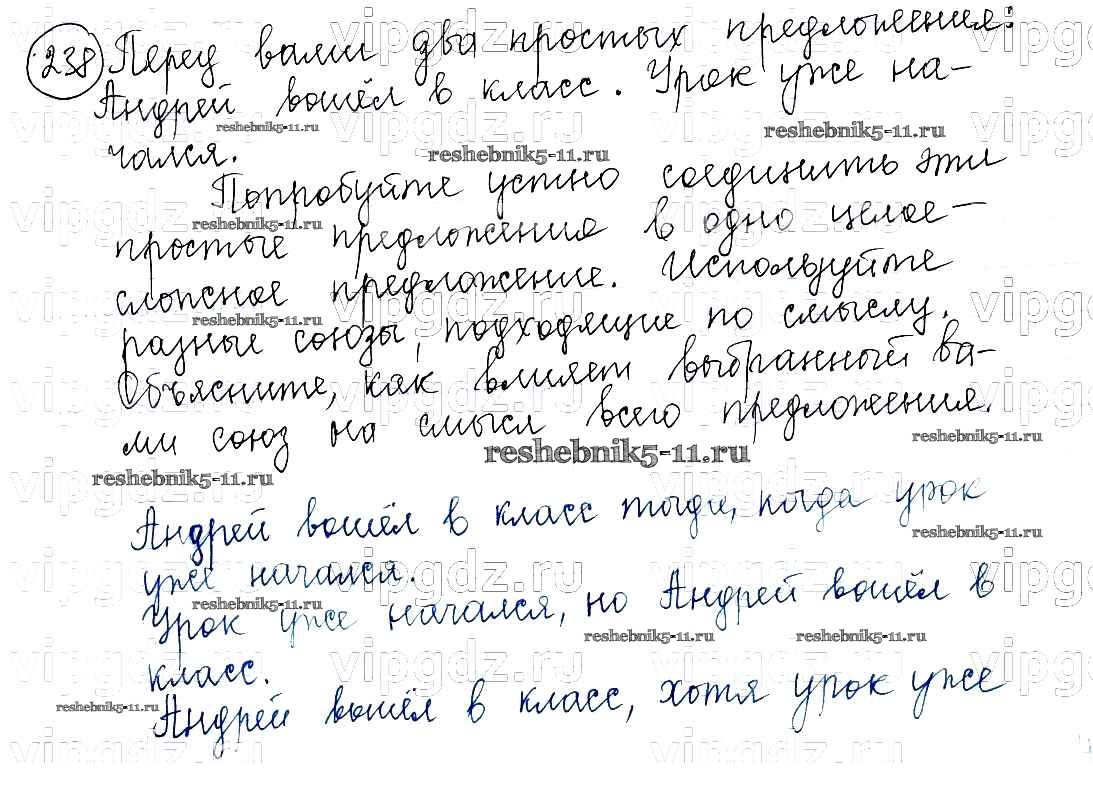 238 Перед вами два простых предложения:
Андрей вошёл в класс. Урок уже на-
чался.
Попробуйте устно соединить эти
простые предложения в одно целое —
сложное предложение. Используйте
разные союзы, подходящие по смыслу.
Объясните, как влияет выбранный ва-
ми союз на смысл всего предложения.
Андрей вошёл в класс тогда, когда урок
уже начался.
Урок уже начался, но Андрей вошёл в
класс.
Андрей вошёл в класс, хотя урок уже